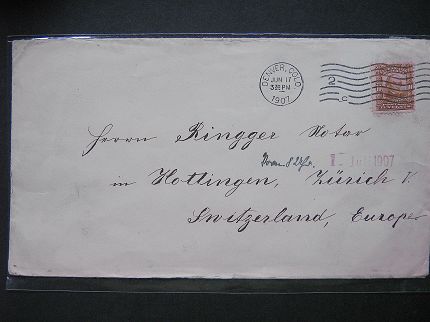 DENVER, COLO.
JUN 17
3 30 PM
1907
2
C
Herrn Ringger Notar
1907
in Hottingen, Zürich V.
Switzerland, Europe